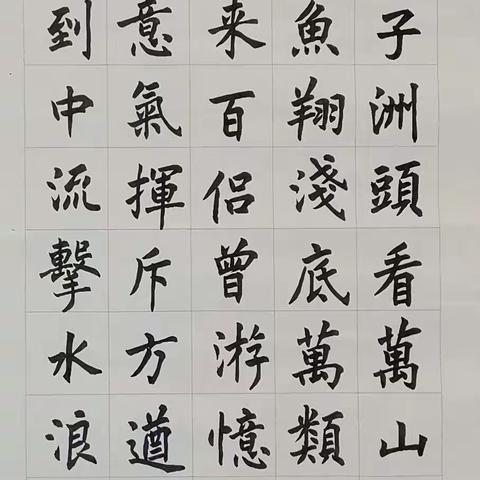 子洲頭看萬山
魚翔淺底萬類
来百侣曾游憶
意氣揮斥方遒
到中流擊水浪